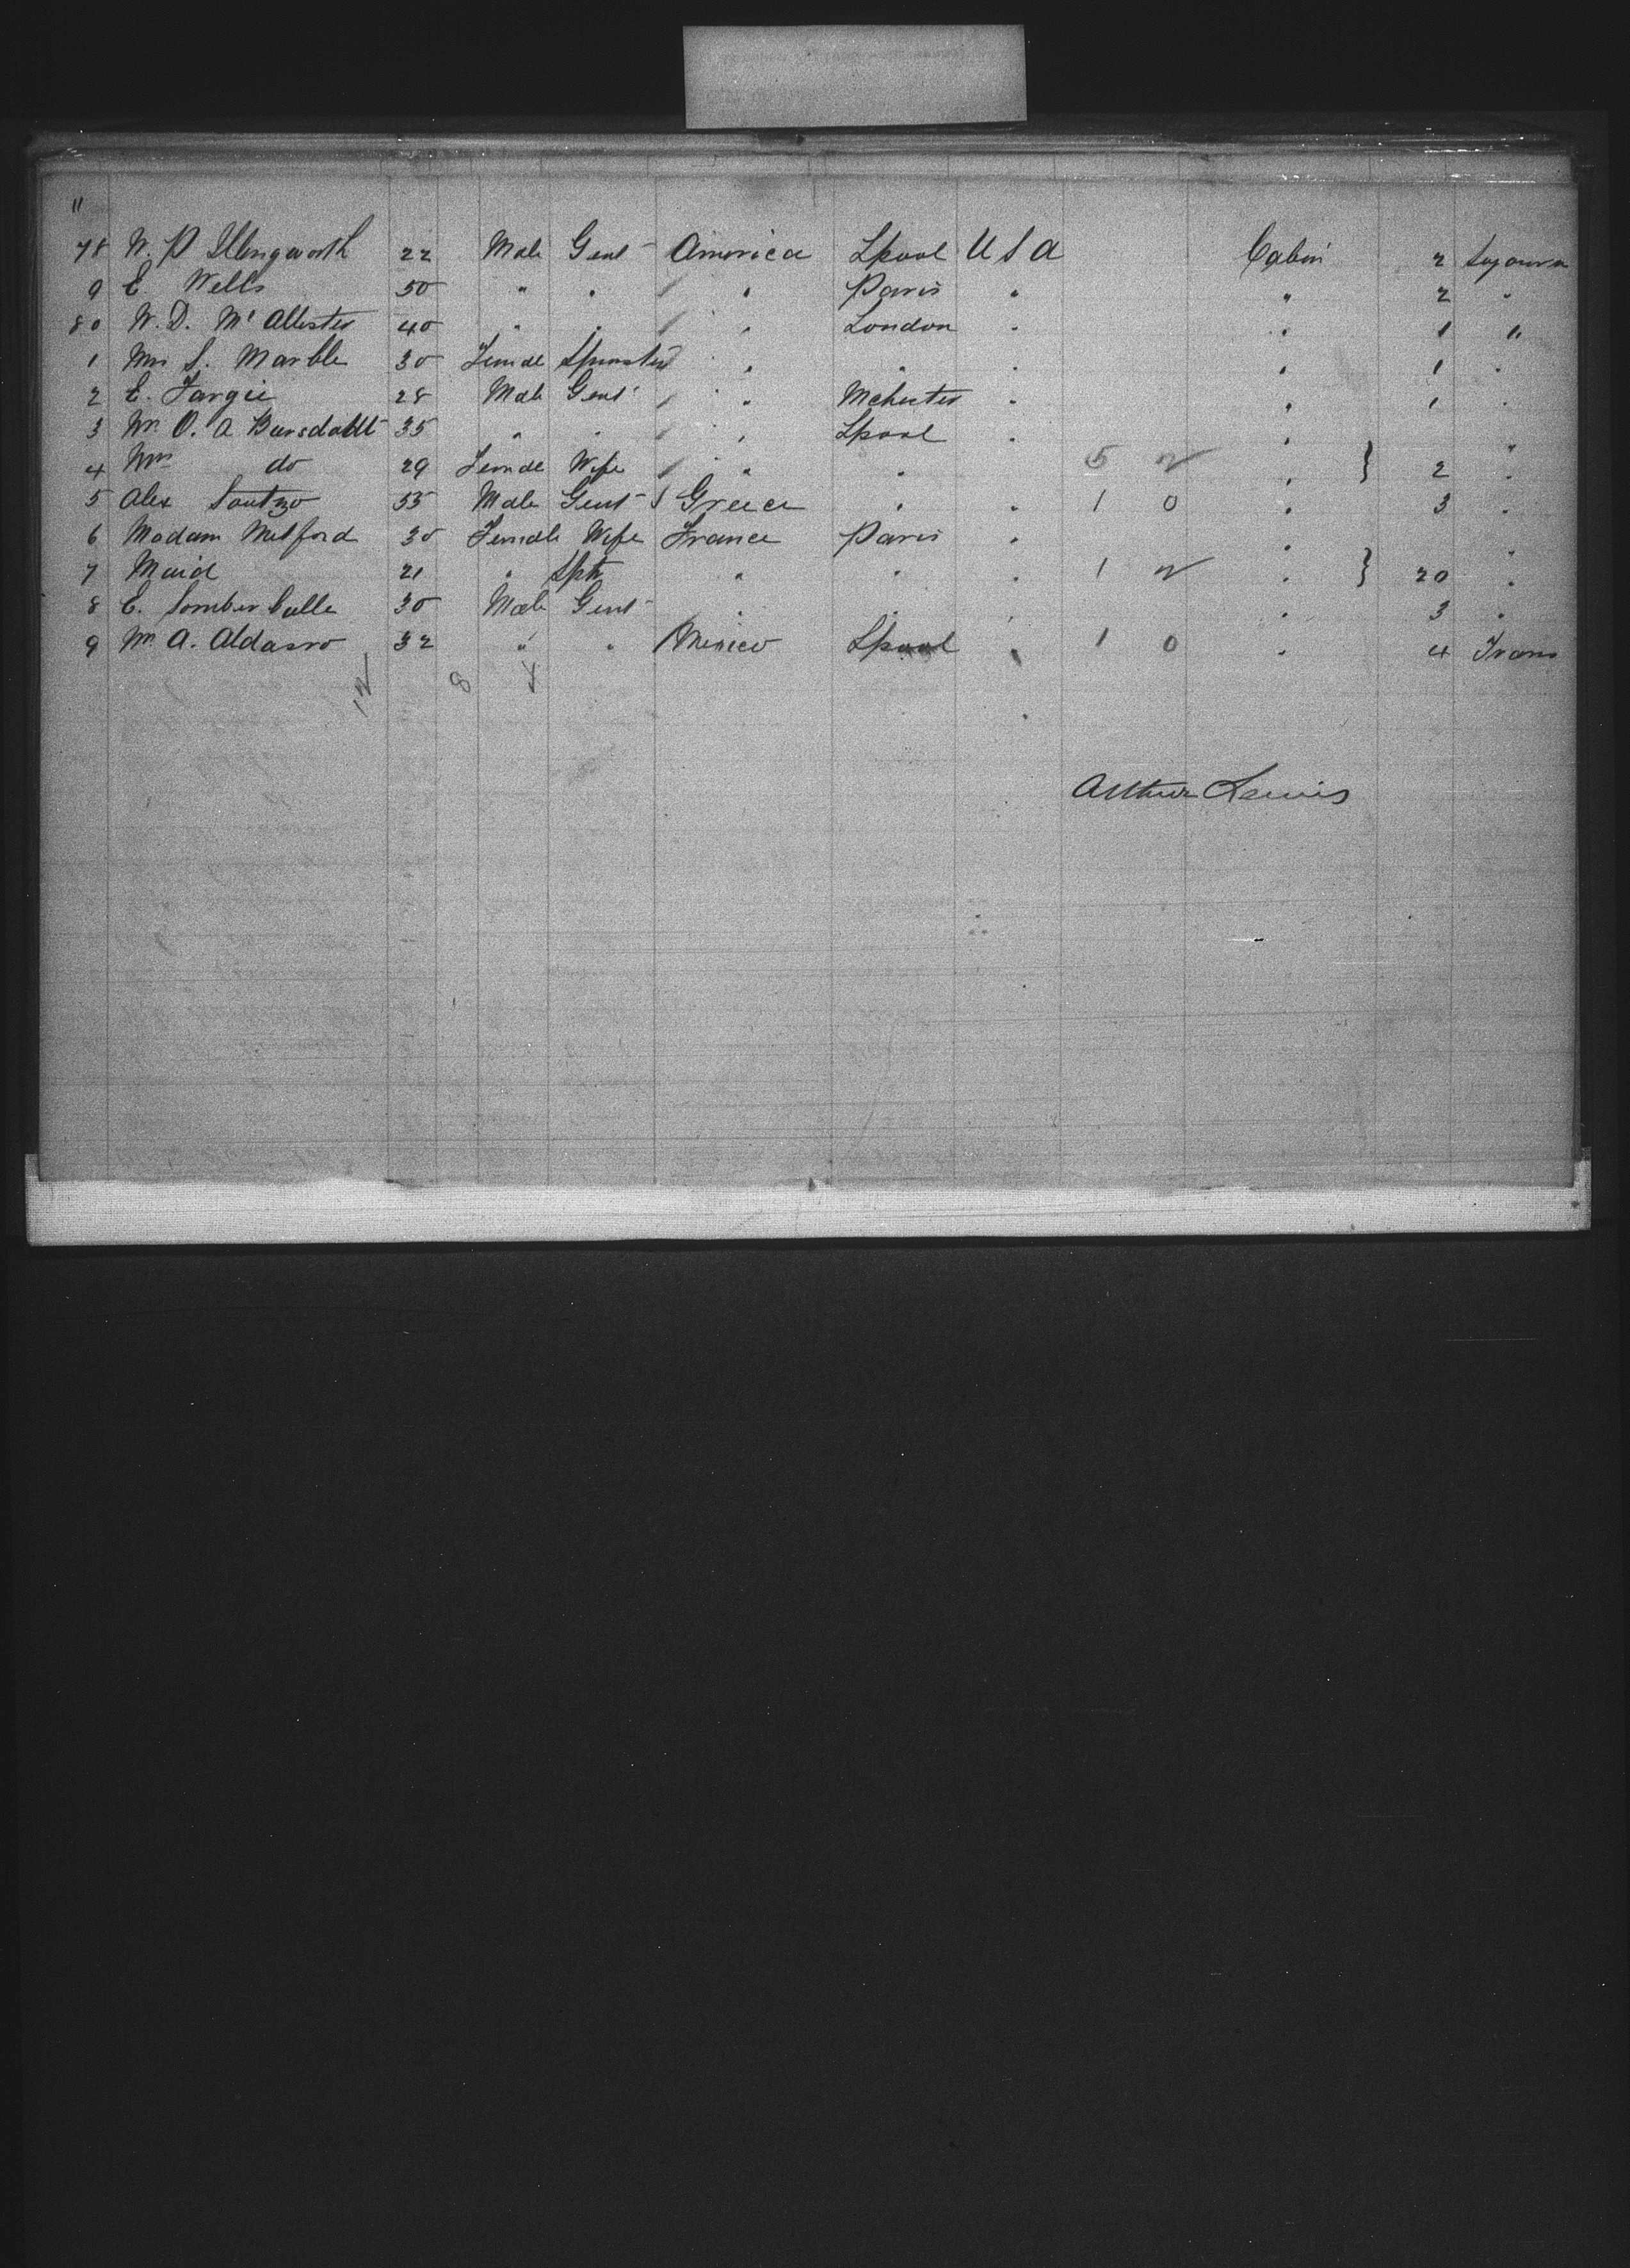 11
78 W. P Illingworth 22 Male Gent America Lpool U S A Cabin 2 Sojourn
9 E Wells 50 " " " Paris " " 2 "
80 W. D. McAllester 40 " " " London " " 1 "
1 Mrs S. Marble 30 Female Spinster " " " " 1 "
2 E. Fargie 28 Male Gent " Mchester " " 1 "
3 Mr O. A 35 " " " Lpool " "
4 Mrs do 29 Female Wife " " " 5 2 " } 2 "
5 Alex Soutzo 55 Male Gent Greece " " 1 0 " 3 "
6 Madam Metford 30 Female Wife France Paris " " "
7 Maid 21 " Sptr " " " 1 2 " } 20 "
8 E. 30 Male Gent " " " " 3 "
9 Mr A. Aldasoro 32 " " Mexico Lpool " 1 0 " 4 Trans
12 8 4
Arthur Lewis